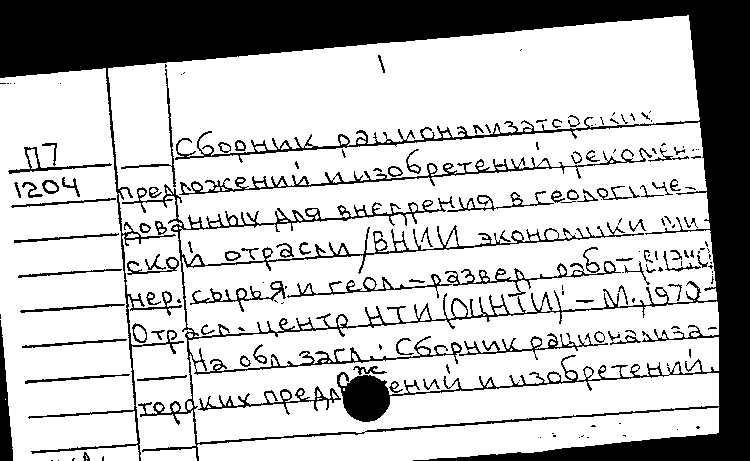 П7
1204
Сборник рационализаторских
предложений и изобретений, рекомен-
дованных для внедрения в геологиче-
ской отрасли / ВНИИ экономики ми-
нер. сырья и геол.-развед. работ,
Отрасл. центр НТИ (ОЦНТИ) – М., 1970–
На обл. загл.: Сборник рационализа-
торских предложений и изобретений.